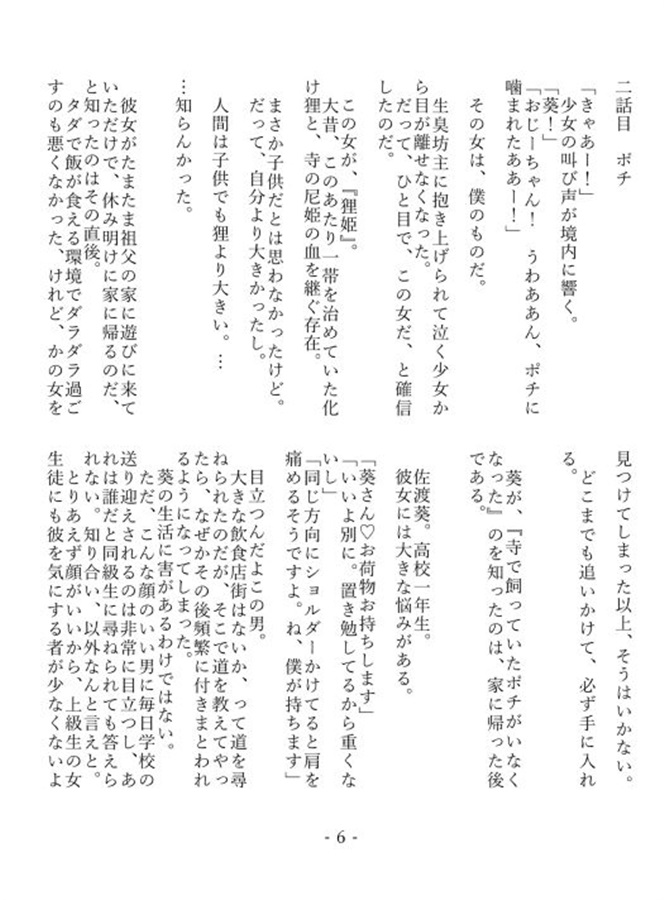 二話目　ポチ
「きゃあー！」
少女の叫び声が境内に響く。
「葵！」
「おじーちゃん！　うわああん、ポチに
噛まれたああー！」
その女は、僕のものだ。
生臭坊主に抱き上げられて泣く少女か
ら目が離せなくなった。
だって、ひと目で、この女だ、と確信
したのだ。
この女が、『狸姫』。
大昔、このあたり一帯を治めていた化
け狸と、寺の尼姫の血を継ぐ存在。
まさか子供だとは思わなかったけど。
だって、自分より大きかったし。
人間は子供でも狸より大きい。…
…知らんかった。
彼女がたまたま祖父の家に遊びに来て
いただけで、休み明けに家に帰るのだ、
と知ったのはその直後。
タダで飯が食える環境でダラダラ過ご
すのも悪くなかった、けれど、かの女を
見つけてしまった以上、そうはいかない。
どこまでも追いかけて、必ず手に入れ
る。
葵が、『寺で飼っていたポチがいなく
なった』のを知ったのは、家に帰った後
である。
佐渡葵。高校一年生。
彼女には大きな悩みがある。
「葵さん♡お荷物お持ちします」
「いいよ別に。置き勉してるから重くな
いし」
「同じ方向にショルダーかけてると肩を
痛めるそうですよ。ね、僕が持ちます」
目立つんだよこの男。
大きな飲食店街はないか、って道を尋
ねられたのだが、そこで道を教えてやっ
たら、なぜかその後頻繁に付きまとわれ
るようになってしまった。
葵の生活に害があるわけではない。
ただ、こんな顔のいい男に毎日学校の
送り迎えされるのは非常に目立つし、あ
れは誰だと同級生に尋ねられても答えら
れない。知り合い、以外なんと言えと。
とりあえず顔がいいから、上級生の女
生徒にも彼を気にする者が少なくないよ
- 6 -